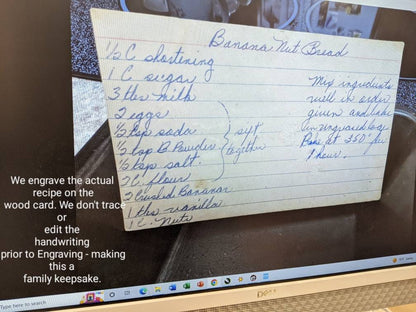 Banana Nut Bread
1/2 C shortening
1 C sugar
3 tbs milk
2 eggs
1/2 tsp soda
1/2 tsp B. Powder
1/2 tsp salt.
2 C. flour
sift
together
2 Crushed Bananas
1 tbs vanilla
1 C. Nuts
Mix ingredients
well in order
given and bake
in
Bake at 350° for
1 hour.
We engrave the actual
recipe on the
wood card. We don't trace
or
edit the
handwriting
prior to Engraving - making
this a
family keepsake.
Type here to search
DELL